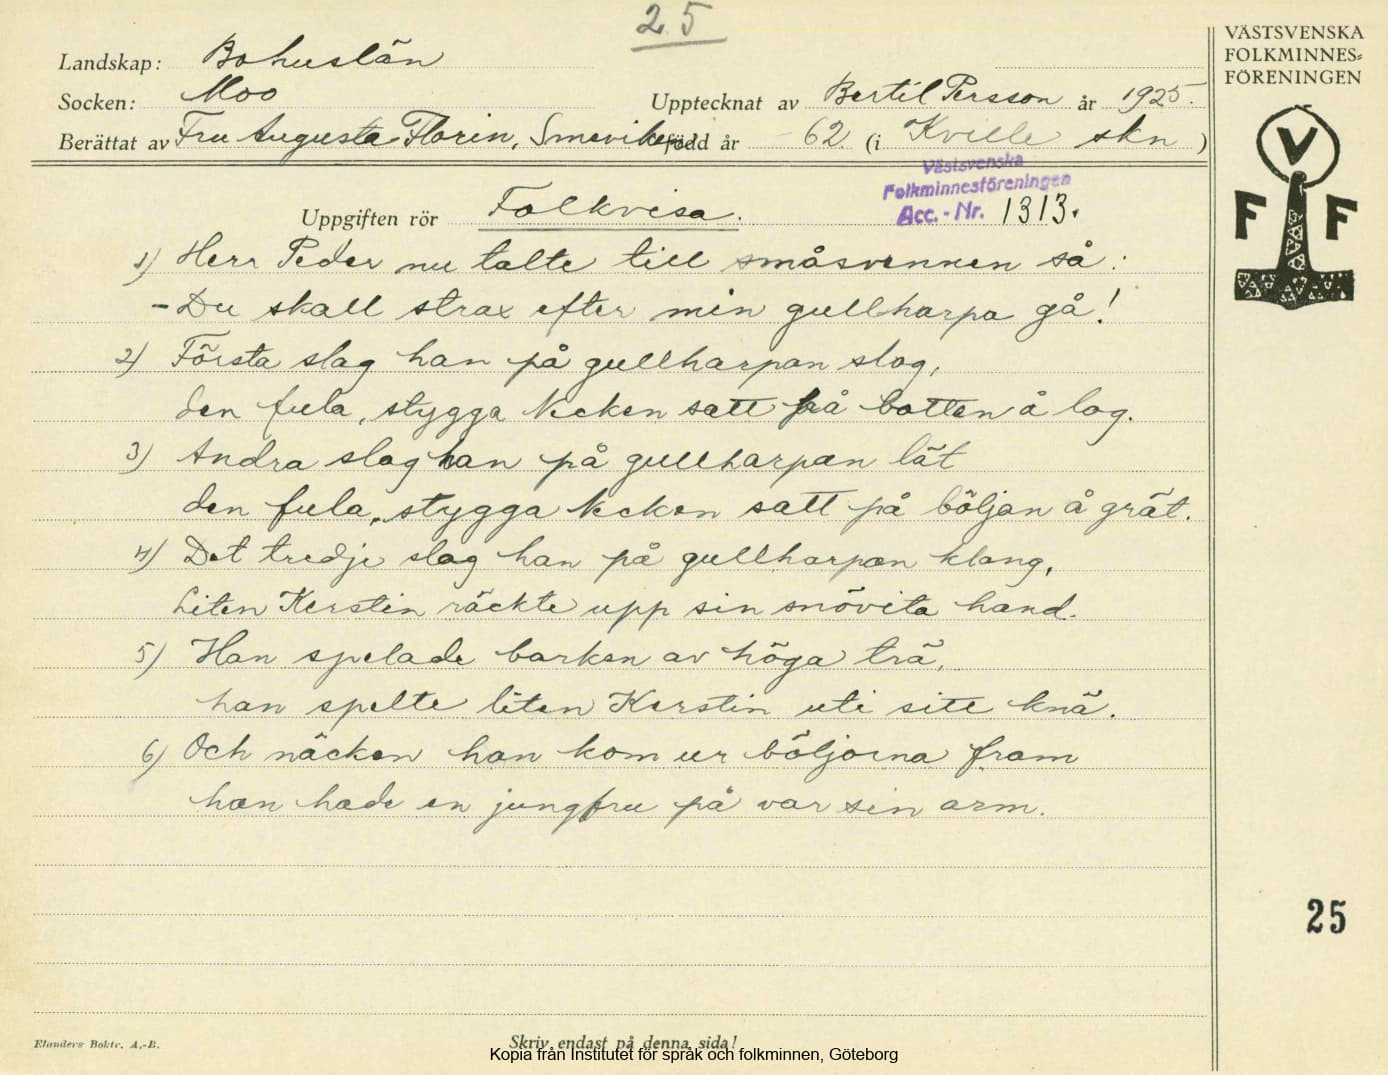 25
VÄSTSVENSKA
FOLKMINNES=
FÖRENINGEN
V
F F
Landskap: Bohuslän
Socken: Moo
Upptecknat av Bertil Persson år 1925.
Berättat av Fru Augusta Florin, Smeviken född år 62. (i Kville skn )
Västsvenska
Folkminnesföreningen
Acc.-Nr. 1313.
Uppgiften rör Folkvisa.
1) Herr Peder nu talte till småsvennen så:
– Du skall strax efter min gullharpa gå!
2) Första slag han på gullharpan slog,
den fula, stygga Necken satt på botten å log.
3) Andra slag han på gullharpan lät
den fula, stygga Necken satt på böljan å grät.
4) Det tredje slag han på gullharpan klang,
Liten Kerstin räckte upp sin snövita hand.
5) Han spelade barken av höga trä,
han spelte liten Kerstin uti sitt knä.
6) Och näcken han kom ur böljorna fram
han hade en jungfru på var sin arm.
25
Elanders Boktr. A.-B.
Skriv endast på denna sida!
Kopia från Institutet för språk och folkminnen, Göteborg